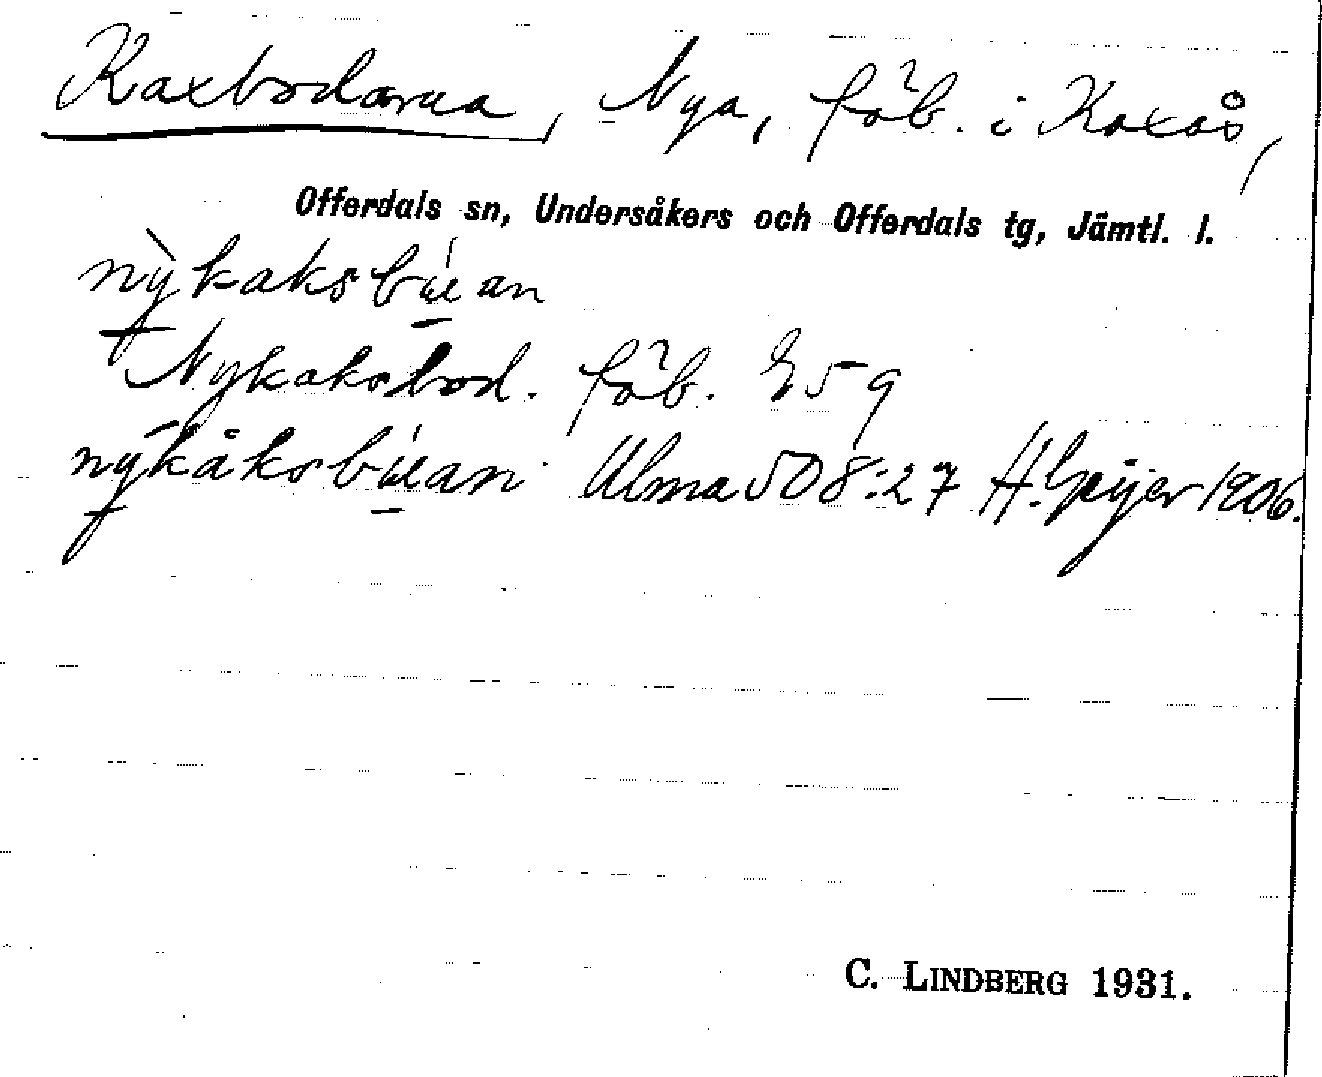 Kaxbodarna, Nya, fäb. i Kaxås,
Offerdals sn, Undersåkers och Offerdals tg, Jämtl. l.
nỳkaksbúan
Nykaksbod. fäb. E59
nykåksbúan Ulma 508:27 H. Geijer 1906.
C. LINDBERG 1931.